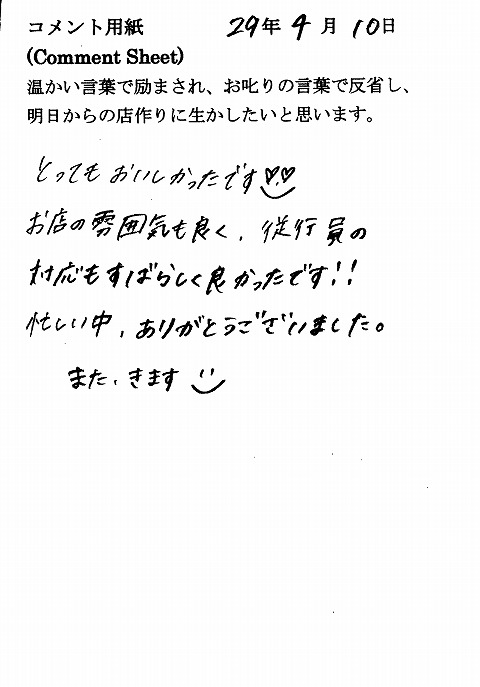 コメント用紙 29年4月10日
(Comment Sheet)
温かい言葉で励まされ、お叱りの言葉で反省し、
明日からの店作りに生かしたいと思います。
とってもおいしかったです♡♡
お店の雰囲気も良く、従行員の
対応もすばらしく良かったです!!
忙しい中、ありがとうございました。
また、きます